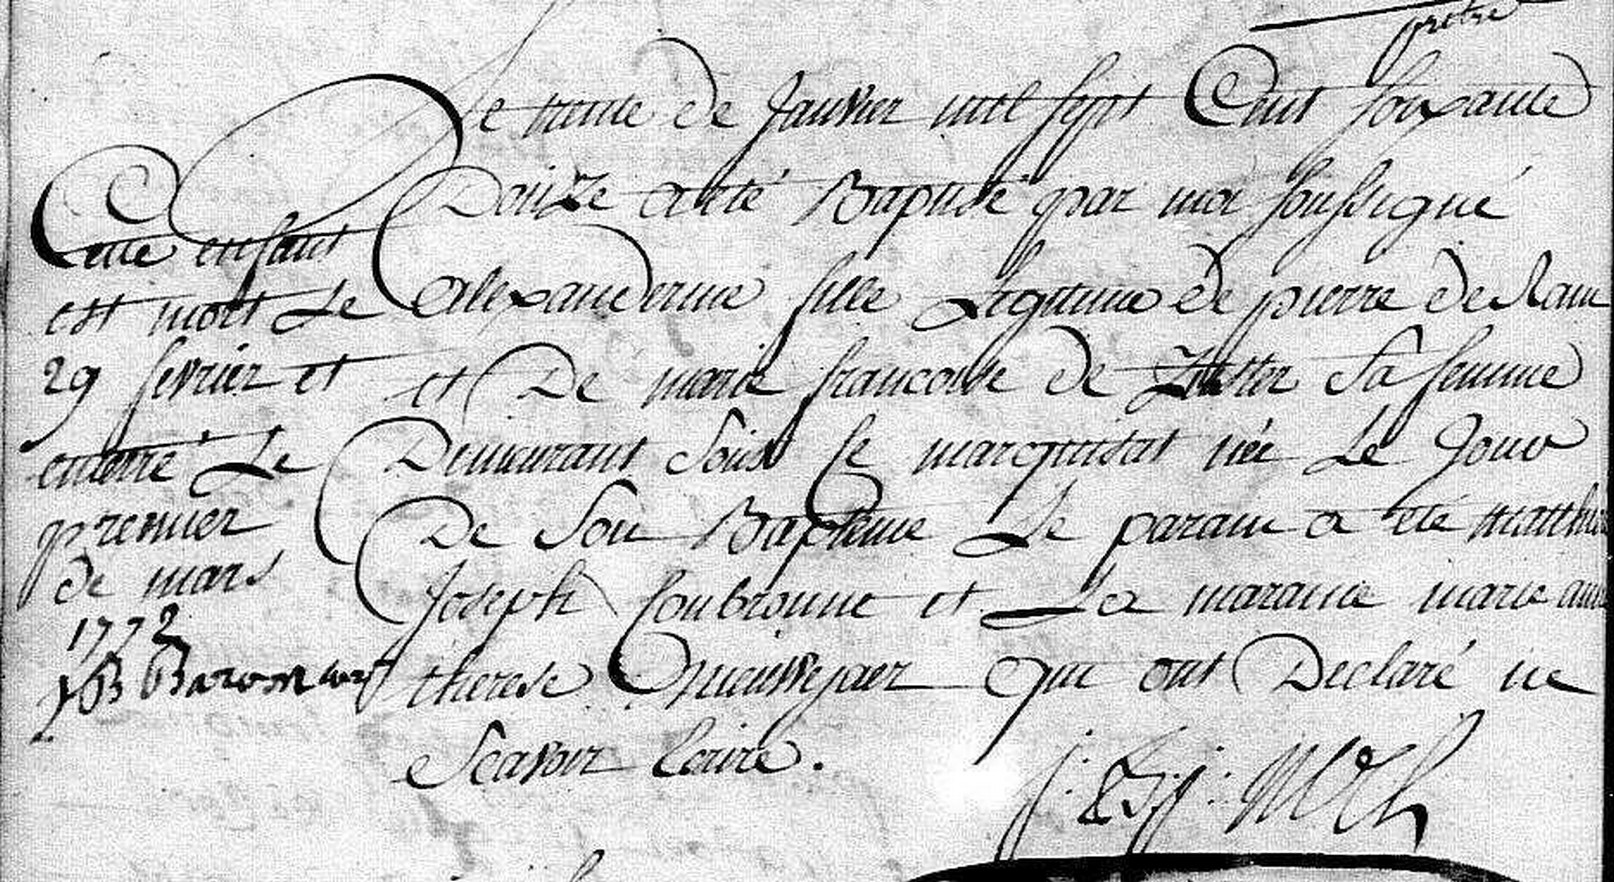 prêtre
Le trente de Janvier mil sept Cent soixante
Douze a été Baptisé par moi soussigné
Alexanderine fille Legitime de pierre de Ram
et De marie francoise de Zutter sa femme
Demeurant sous le marquisat née le Jour
De son Bapteme Le parain a été matthieu
Joseph Coubronne et La maraine marie anne
therese qui ont Declaré ne
scavoir Ecrire.
Cette enfant
est mort Le
29 fevrier et
enterré Le
premier
de mars
1772